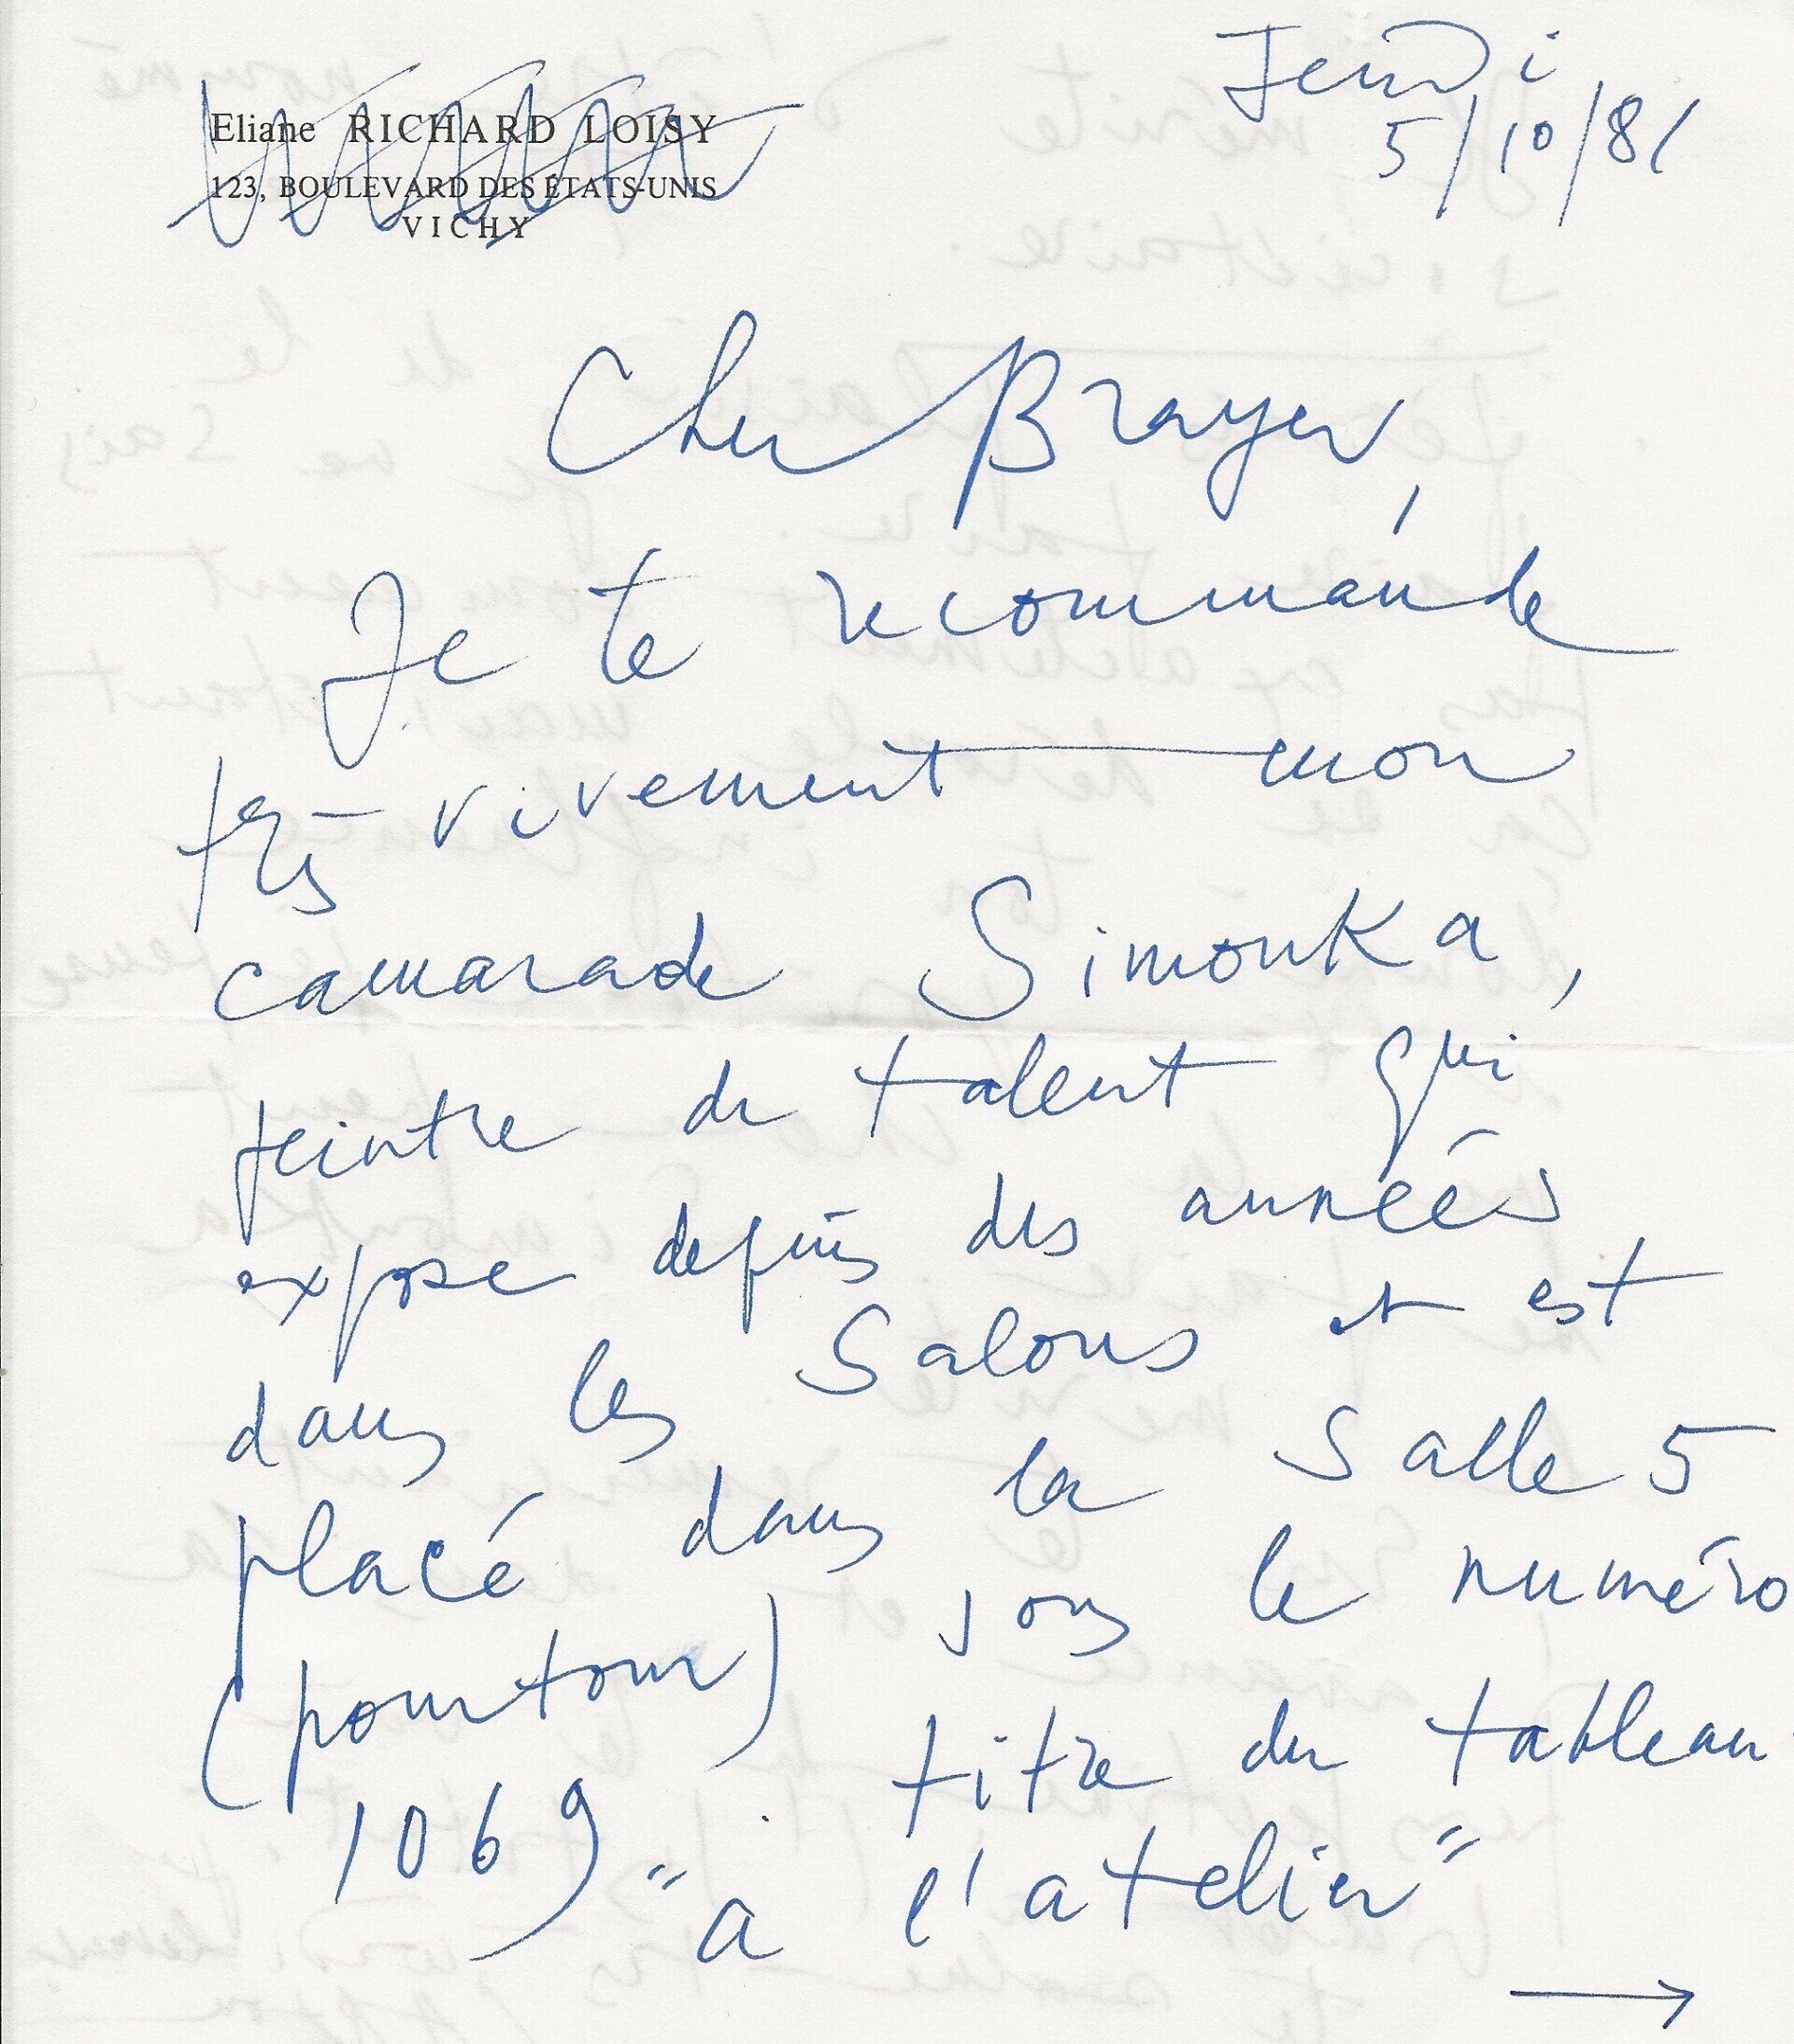 Jeudi
5/10/81
Eliane RICHARD LOISY
123, BOULEVARD DES ÉTATS-UNIS
VICHY
Cher Brayer,
Je te recommande
très vivement mon
camarade Simonka,
peintre de talent qui
expose depuis des années
dans les Salons et est
placé dans la Salle 5
(pourtour) sous le numéro
1069. titre du tableau
"a l'atelier"
→